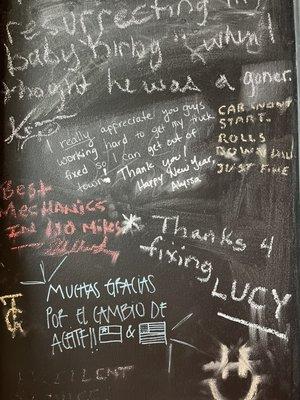 resurrecting my
baby Kirby "when I
thought he was a goner.
I really appreciate you guys
working hard to get my truck
fixed so I can get out of
town! Thank you!
Happy New Year,
CAB WONT
START.
ROLLS
DOWN HILL
JUST FINE
Best
Mechanics
IN 110 Miles
Thanks 4
fixing
LUCY
MUCHAS GRACIAS
POR EL CAMBIO DE
ACEITE!! &